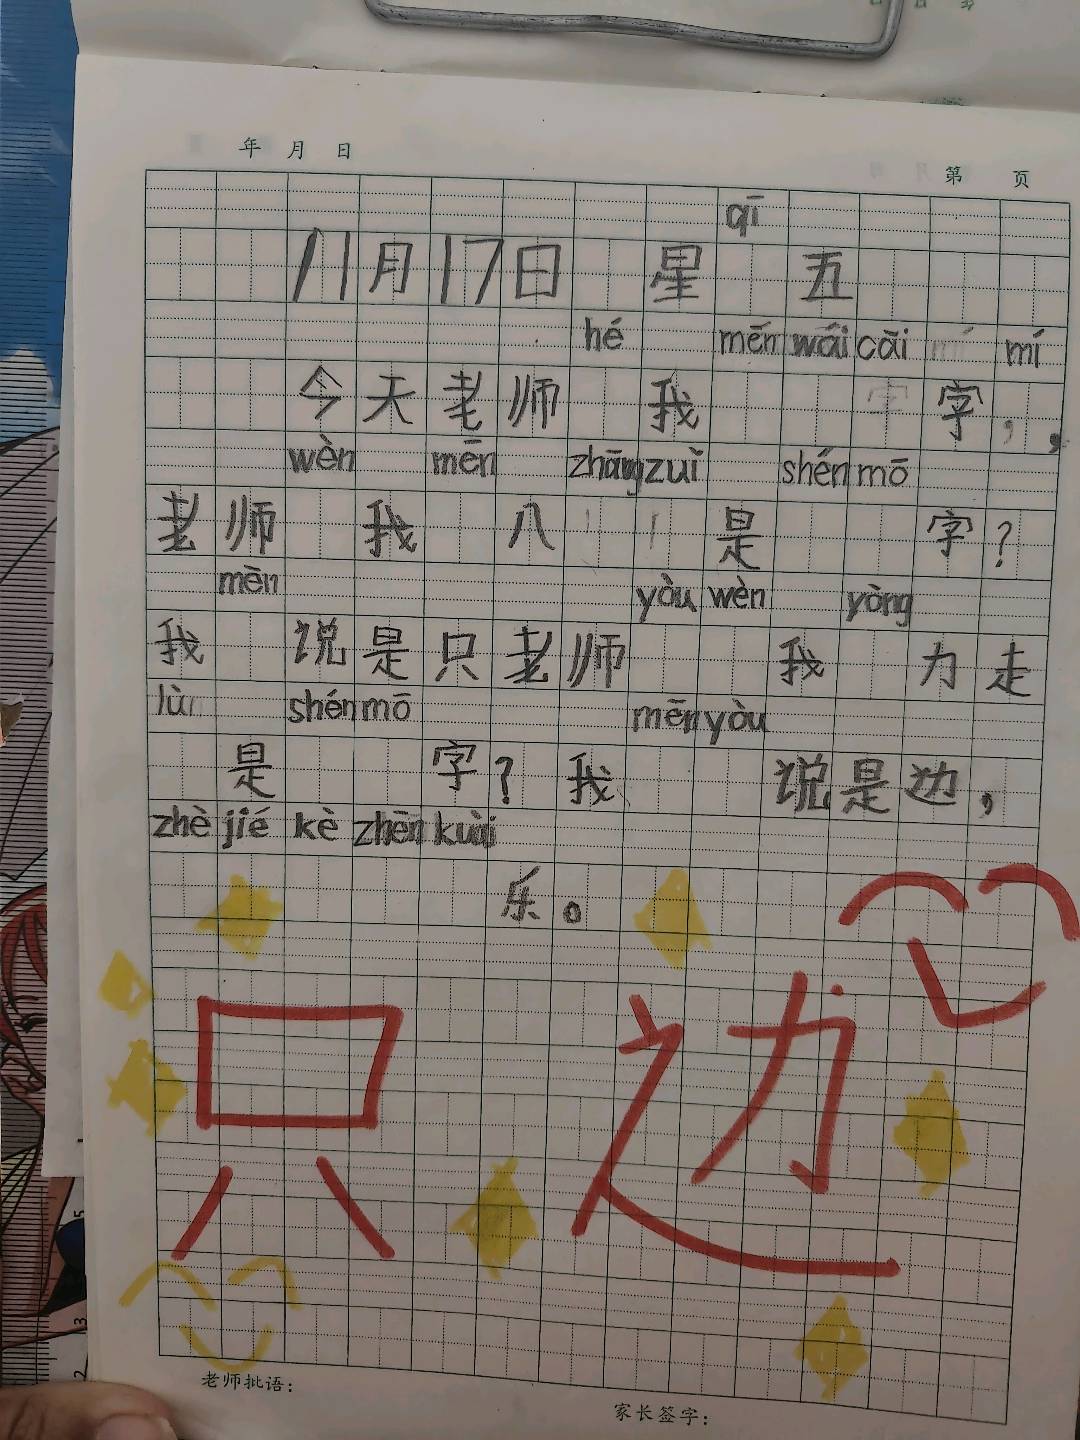 年 月 日
第 页
qī
11月17日 星 五
hé mēn wái cāi mí mí
今天老师 我 字 字，，
wèn mēn zhāng zuǐ shén mō
老师 我 八 是 字？
mēn yòu wèn yòng
我 说是只老师 我 力走
lù shén mō mēn yòu
是 字？我 说是边，
zhè jié kè zhēn kuài
乐。
只 边
老师批语：
家长签字：